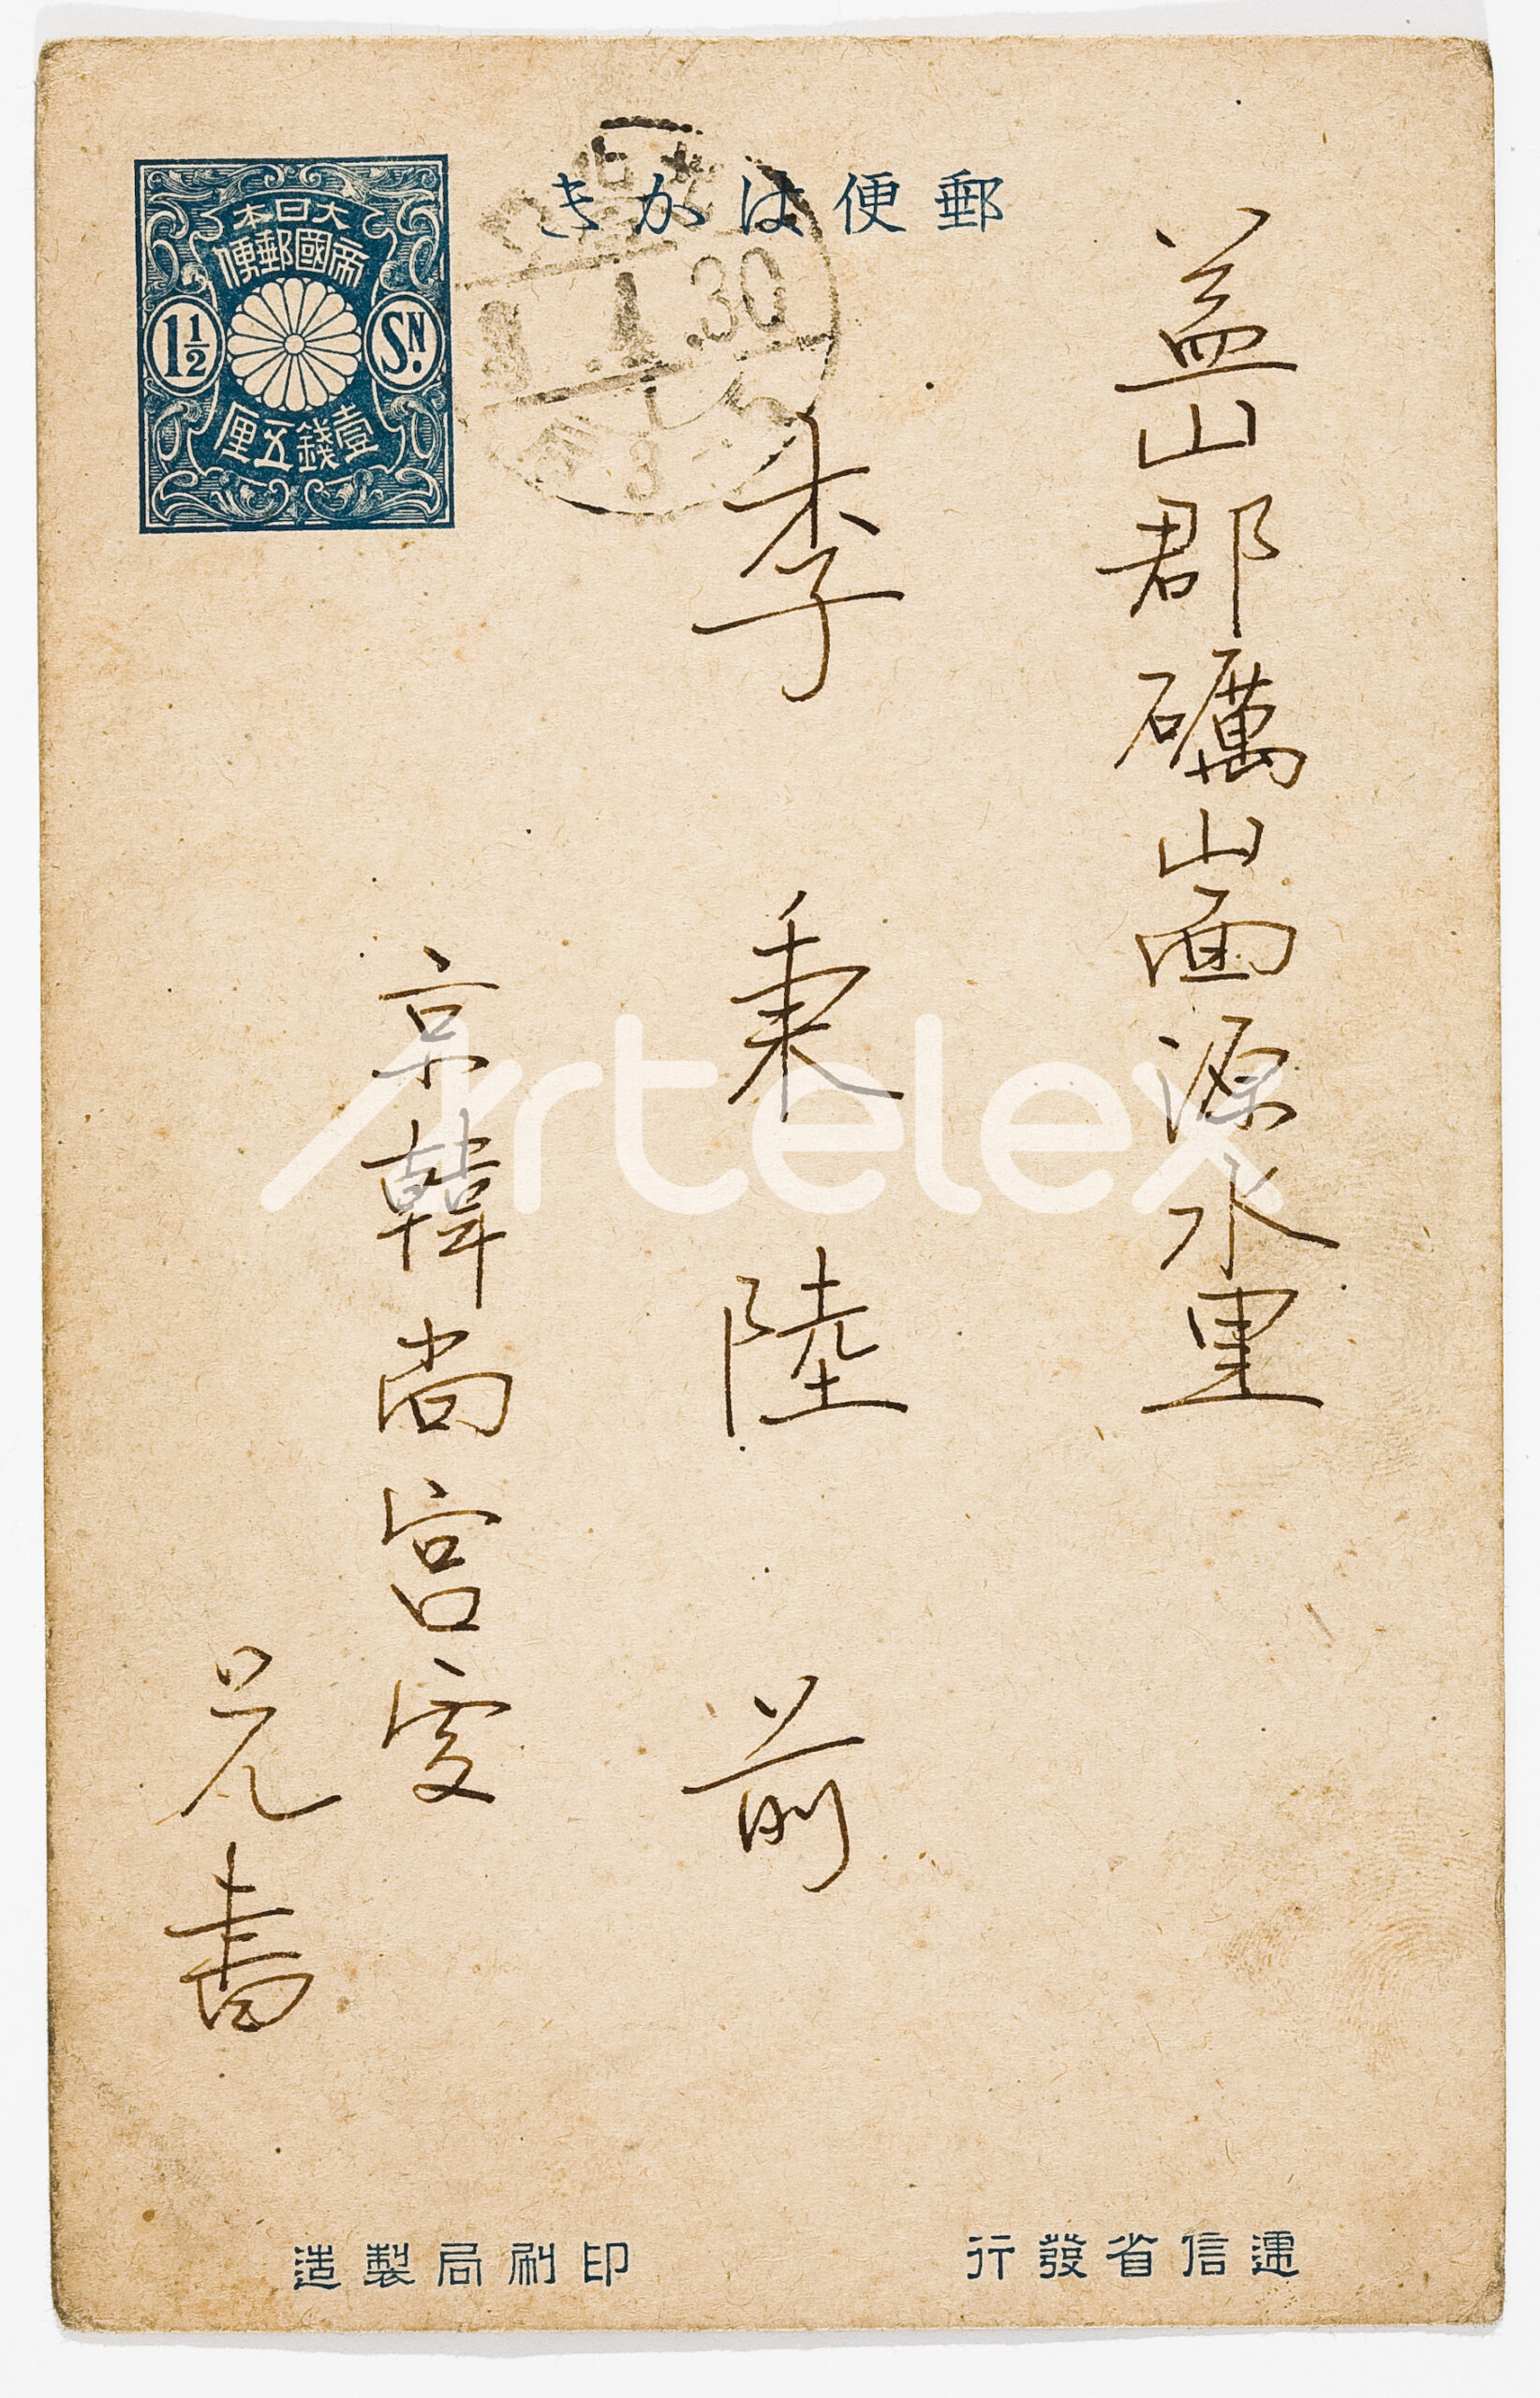 郵便はかき
大日本
帝國郵便
1½ SN.
壹錢五厘
4 .30
益山郡礪山面源水里
李秉陸 前
京韓尚宮處
兄書
遞信省發行
印刷局製造
Artelex